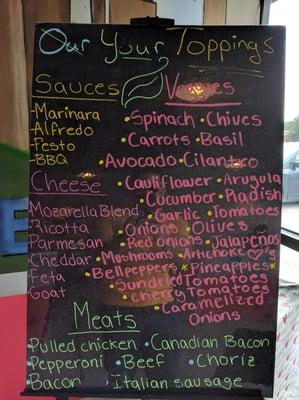 Our Your Toppings
Sauces
-Marinara
-Alfredo
-Pesto
-BBQ
Cheese
-Mozarella Blend
-Ricotta
-Parmesan
-Cheddar
-Feta
-Goat
Veggies
•Spinach •Chives
•Carrots •Basil
•Avocado •Cilantro
•Cauliflower •Arugula
•Cucumber •Radish
•Garlic •Tomatoes
•Onions •Olives
•Red onions •Jalapeños
•Mushrooms •Artichoke ♡'s
•Bellpeppers *Pineapples*
•Sundried Tomatoes
•cherry Tomatoes
•Caramelized
Onions
Meats
•Pulled chicken •Canadian Bacon
•Pepperoni •Beef •Choriz
•Bacon •Italian sausage